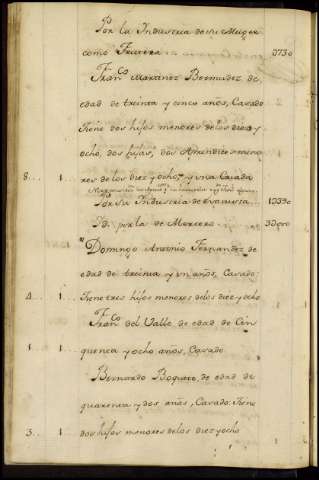 Por la Industria de su Muger
como Frutera 3730
Fran.co Martinez Bermudez de
edad de treinta y cinco años, Casado
tiene dos hijos menores de los diez y
ocho, dos hijas, dos Aprendizes meno
8... 1... res de los diez y ocho, y una Criada
Por su Industria de
Id. por la de Mercero
Domingo Antonio Fernandez de
edad de treinta y un años, Casado
4... 1... tiene tres hijos menores de los diez y ocho
Fran.co del Valle de edad de Cin
1... 1... quenta y ocho años, Casado
Bernardo Boquete, de edad de
quarenta y dos años, Casado: tiene
3... 1... dos hijos menores de los diez y ocho